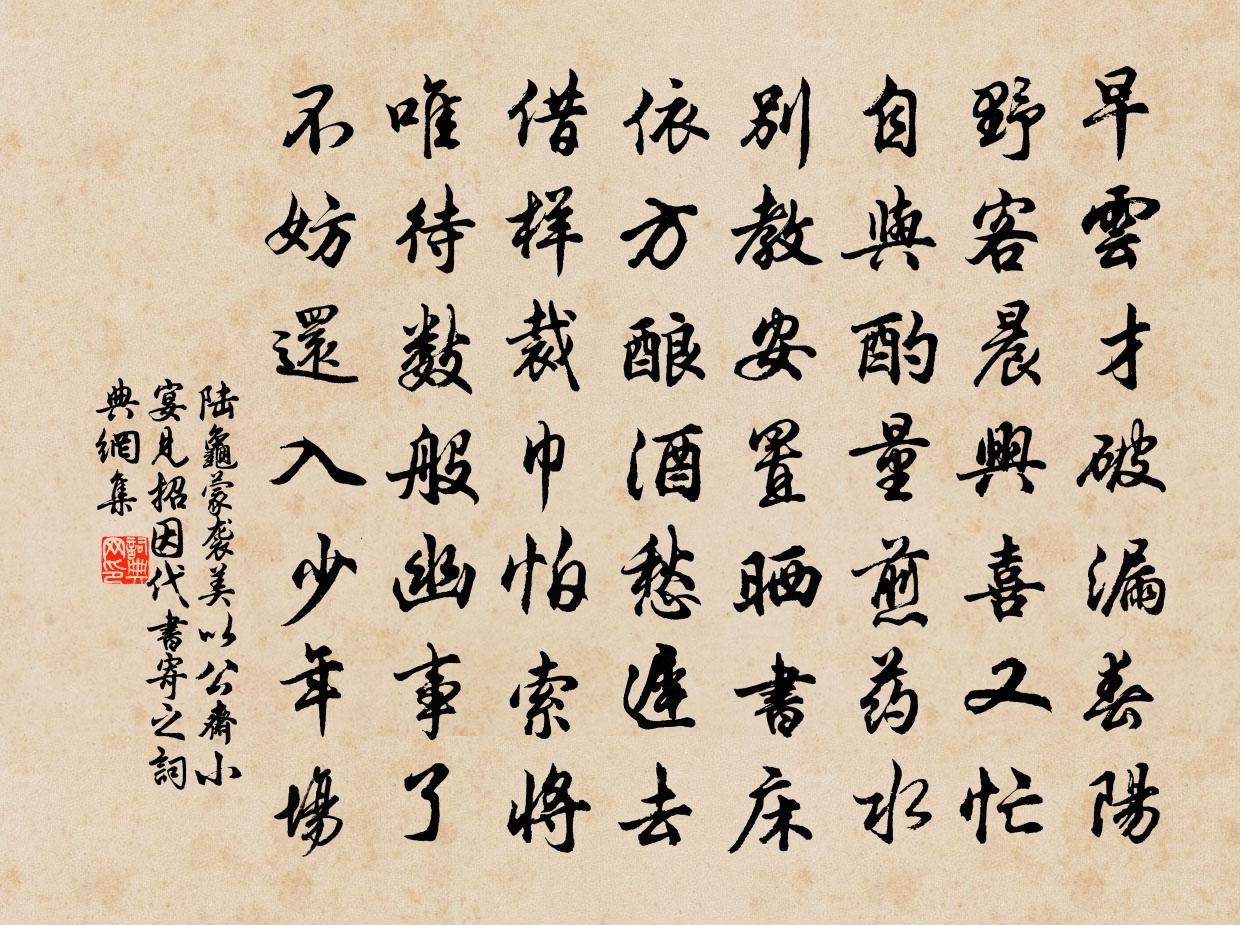 早雲才破漏春陽
野客晨興喜又忙
自與酌量煎药水
別教安置晒書床
依方酿酒愁遲去
借样裁巾怕索將
唯待數般幽事了
不妨還入少年場
陆龜蒙袭美以公齋小
宴見招因代書寄之詞
典網集
詞典网印